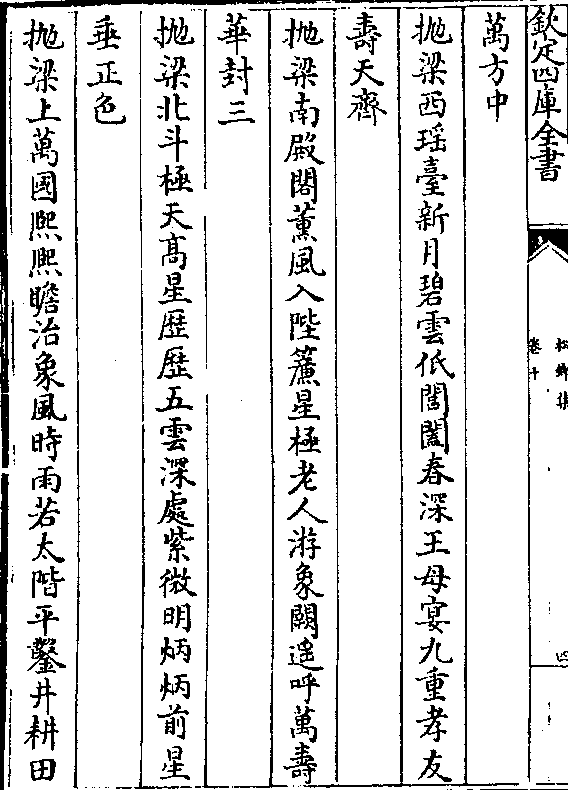 欽定四庫全書
松鄉集
卷十
四
萬方中
拋梁西瑶臺新月碧雲低閶闔春深王母宴九重孝友
壽天齊
拋梁南殿閣薰風入陛簾星極老人游象闕遥呼萬壽
華封三
拋梁北斗極天髙星歴歴五雲深處紫微明炳炳前星
垂正色
拋梁上萬國熈熈瞻治象風時雨若太階平鑿井耕田